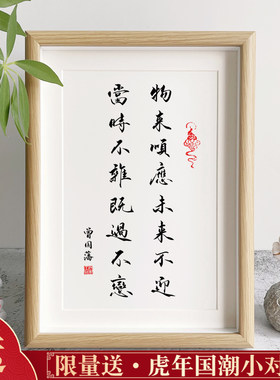 物来順應未来不迎
當時不雜既過不戀
曾国藩
限量送·虎年国潮小对